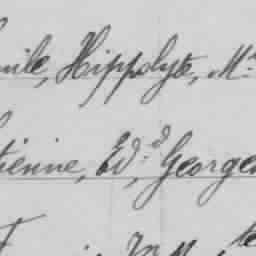 mile, Hippolyte, Mr
tienne, Ed.d, George